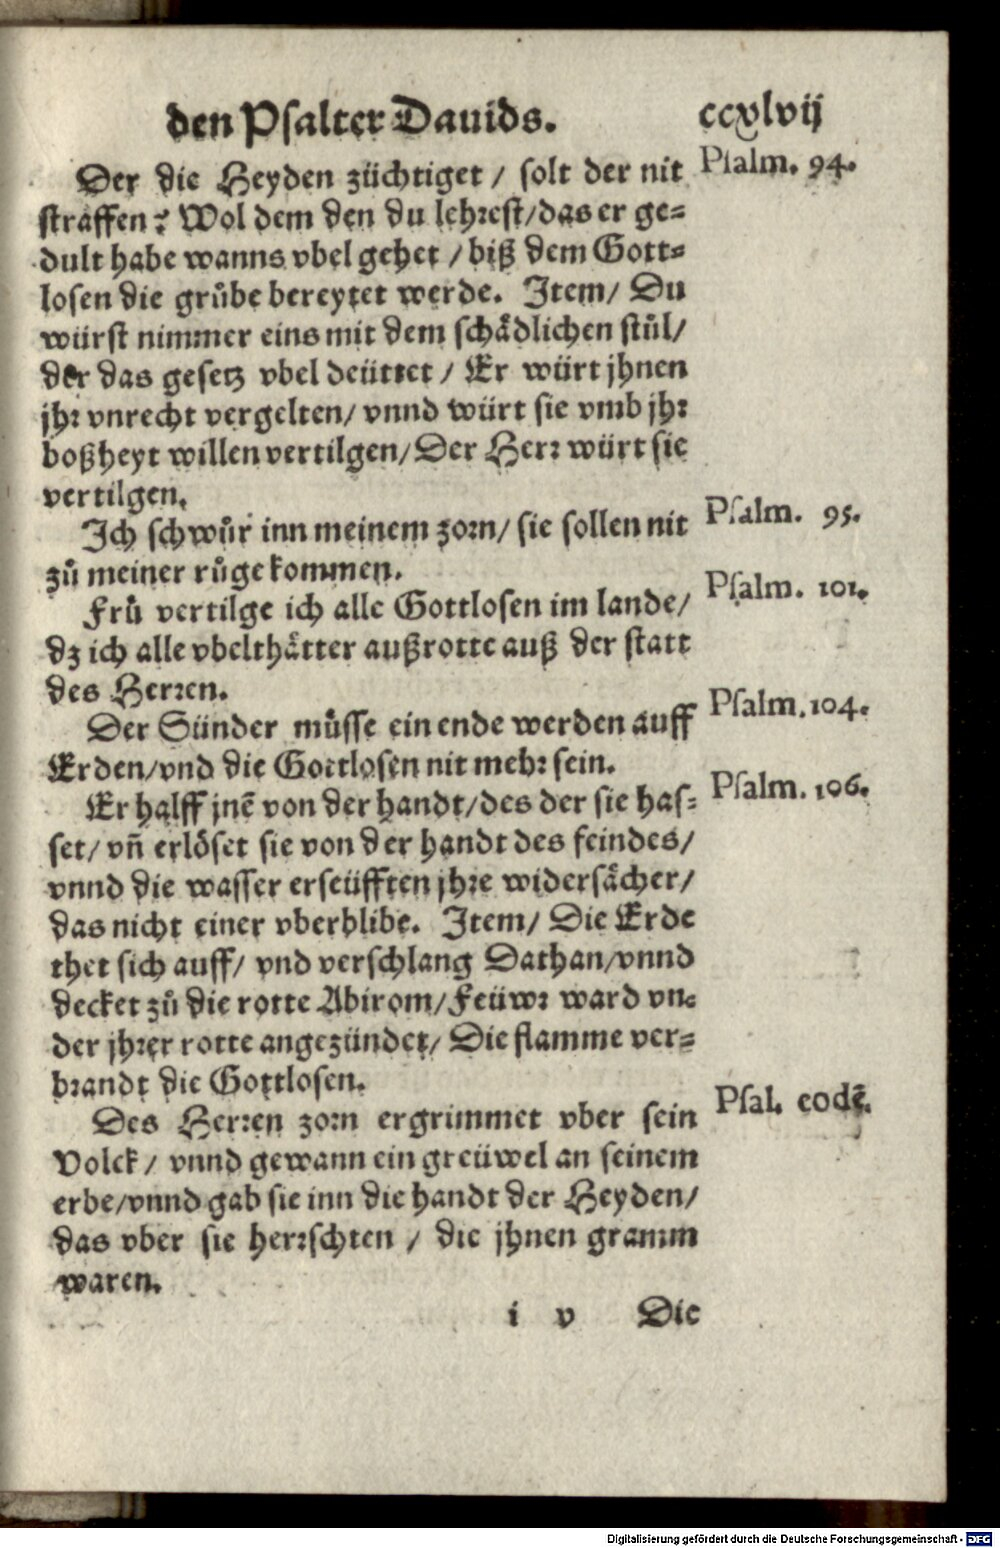 den Psalter Dauids. ccxlvij
Der die Heyden züchtiget / solt der nit Psalm. 94.
straffen? Wol dem den du lehrest/das er ge=
dult habe wanns vbel gehet / biß dem Gott=
losen die grůbe bereytet werde. Item/ Du
würst nimmer eins mit dem schädlichen stůl/
der das gesetz vbel deüttet / Er würt jhnen
jhr vnrecht vergelten/ vnnd würt sie vmb jhr
boßheyt willen vertilgen/Der Herr würt sie
vertilgen.
Ich schwůr inn meinem zorn/ sie sollen nit Psalm. 95.
zů meiner růge kommen.
Frů vertilge ich alle Gottlosen im lande/ Psalm. 101.
dz ich alle vbelthätter außrotte auß der statt
des Herren.
Der Sünder müsse ein ende werden auff Psalm. 104.
Erden/vnd die Gottlosen nit mehr sein.
Er halff jnē von der handt/des der sie has= Psalm. 106.
set/ vñ erlöset sie von der handt des feindes/
vnnd die wasser erseüfften jhre widersächer/
das nicht einer vberblibe. Item/ Die Erde
thet sich auff/ vnd verschlang Dathan/vnnd
decket zů die rotte Abirom/Feüwr ward vn=
der jhrer rotte angezündet/ Die flamme ver=
brandt die Gottlosen.
Des Herren zorn ergrimmet vber sein Psal. eodē.
Volck / vnnd gewann ein greüwel an seinem
erbe/vnnd gab sie inn die handt der Heyden/
das vber sie herrschten / die jhnen gramm
waren.
i v Die
Digitalisierung gefördert durch die Deutsche Forschungsgemeinschaft - DFG